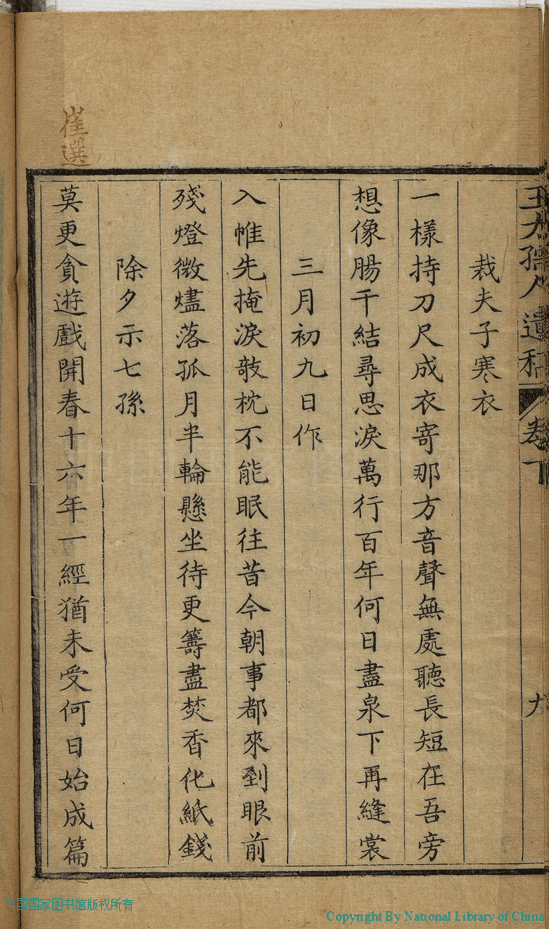 王大孺人遺稿 卷下 九
裁夫子寒衣
一樣持刀尺成衣寄那方音聲無處聽長短在吾旁
想像腸千結尋思淚萬行百年何日盡泉下再縫裳
三月初九日作
入帷先掩淚敧枕不能眠往昔今朝事都來到眼前
殘燈微燼落孤月半輪懸坐待更籌盡焚香化紙錢
除夕示七孫
莫更貪遊戲開春十六年一經猶未受何日始成篇
崔選
中国国家图书馆版权所有
Copyright By National Library of China